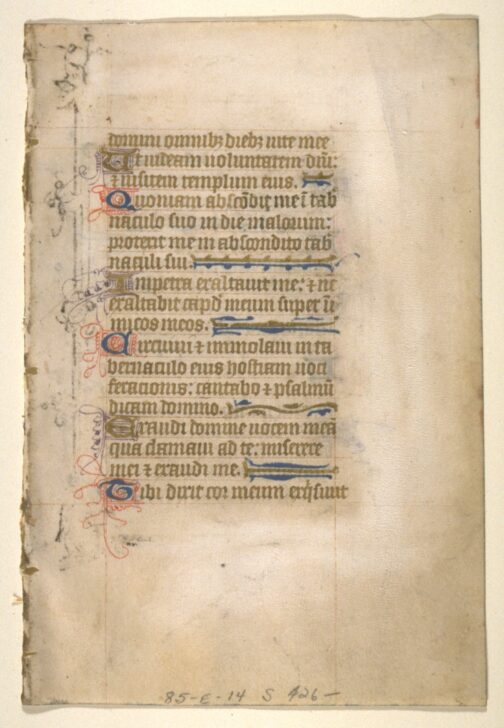 domini omnibꝫ diebꝫ uite mee
Ut uideam uoluntatem dn̄i:
⁊ uisitem templum eius.
Quoniam abscōdit me ī tab
naculo suo in die malorum:
protexit me in abscondito tab
naculi sui.
In petra exaltauit me: ⁊ nc̄
exaltabit capd meum super ī
imicos meos.
Circuiui ⁊ immolaui in ta
bernaculo eius hostiam uoci
ferationis: cantabo ⁊ psalmū
dicam domino.
Exaudi domine uocem meā
qua clamaui ad te: miserere
mei ⁊ exaudi me.
Tibi dixit cor meum exqͥsiuit
85-E-14 S 426-